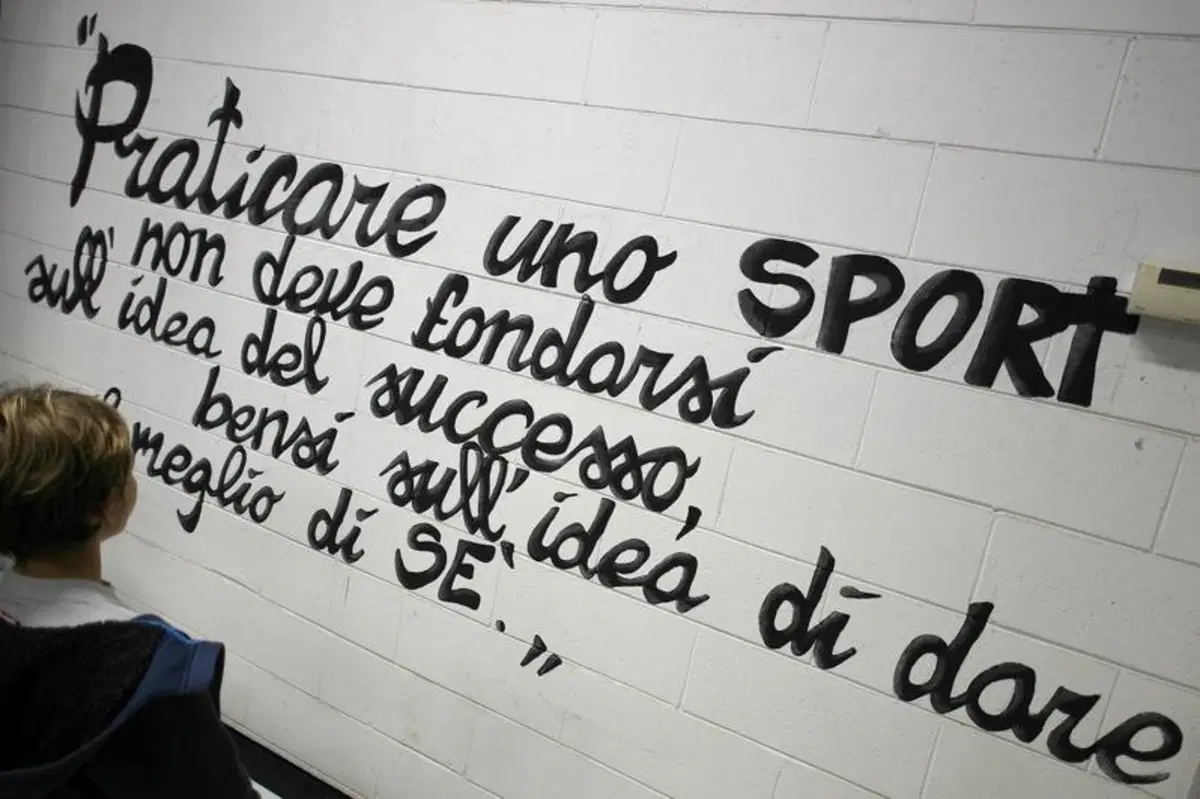 "Praticare uno SPORT
non deve fondarsi
sull'idea del successo,
bensí sull'idea di dare
meglio di SE'."